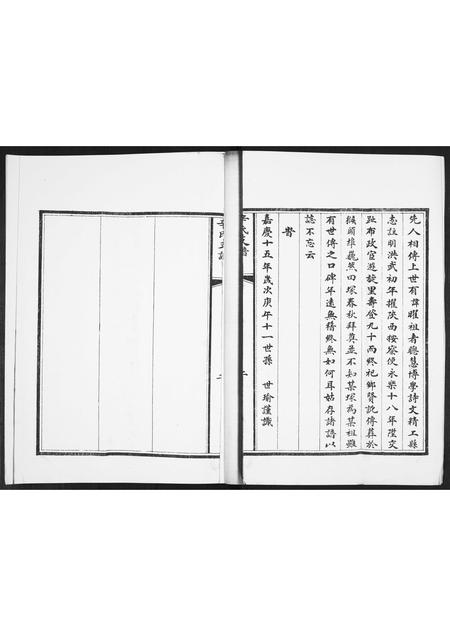 先人相傳上世有諱曜祖者聰慧博學詩文精工縣
志註明洪武初年擢陝西按察使永樂十八年陞文
趾布政官遊旋里壽登九十而終祀鄉賢訛傳葬於
猴頭堆巍然四塚春秋拜奠並不知某塚為某祖雖
有世傳之口碑年遠無稽終無如何耳姑存諸譜以
誌不忘云
嘉慶十五年歲次庚午十一世孫 世瑜謹識